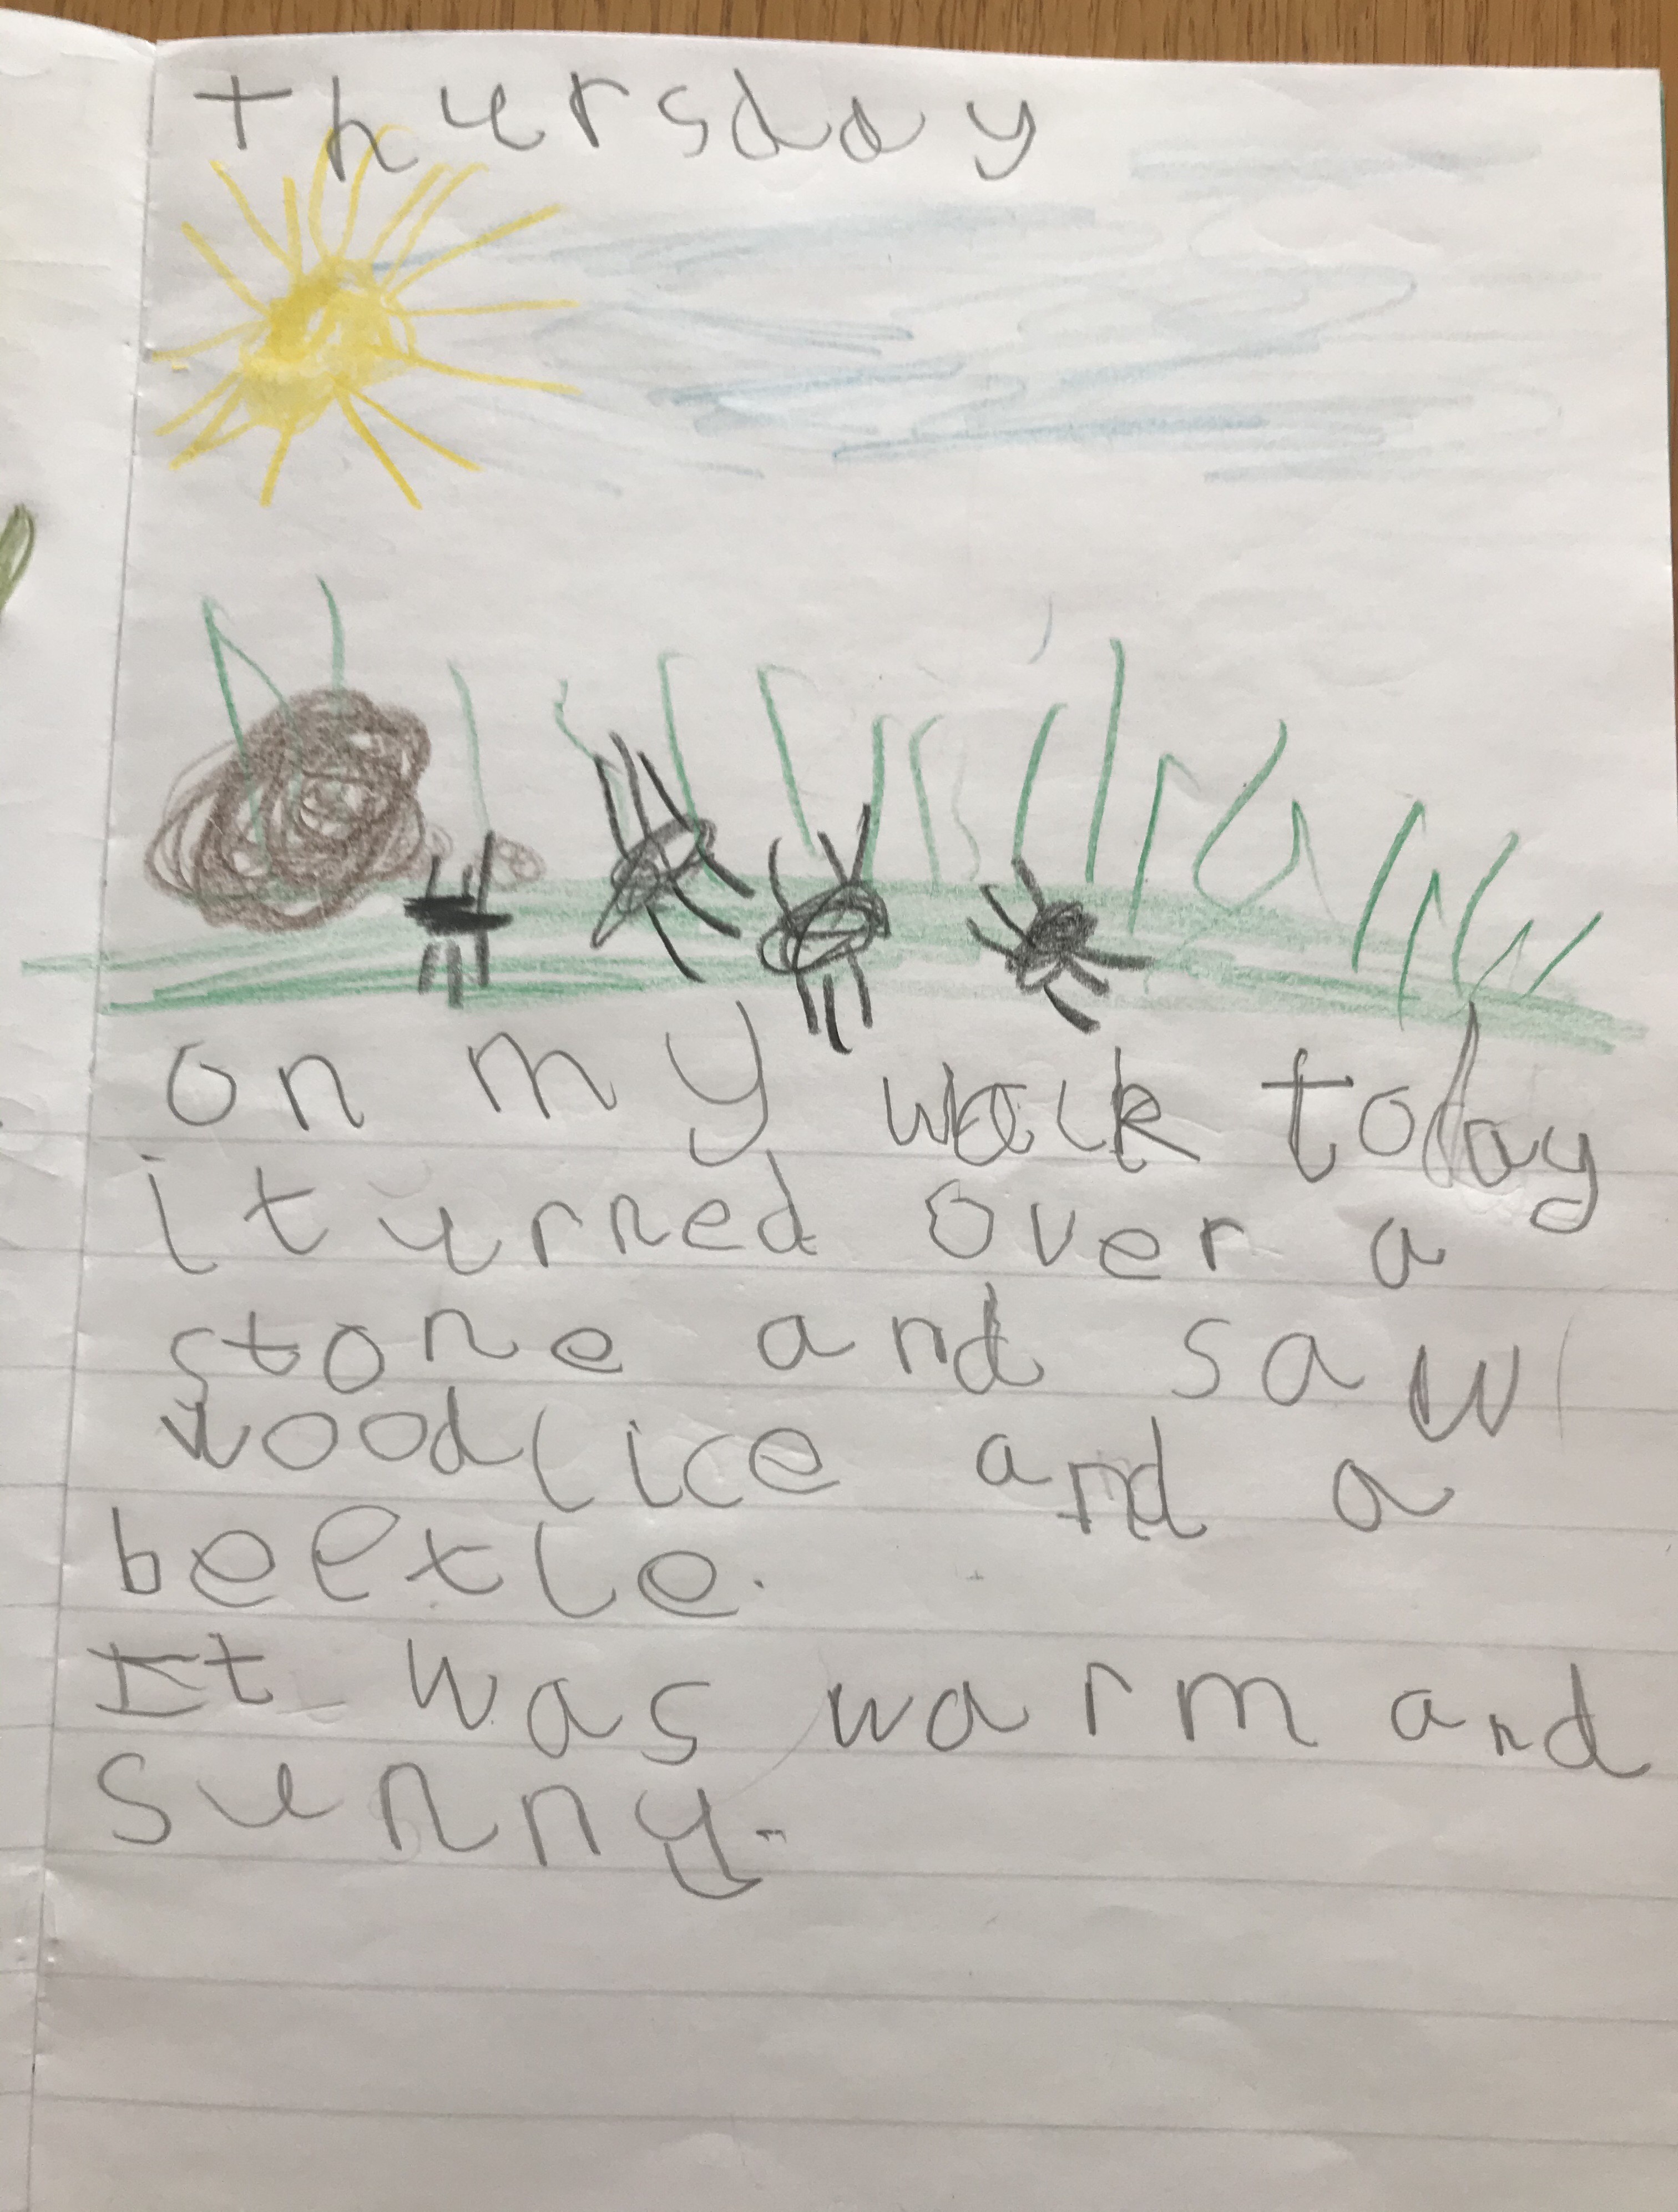 thursday
on my walk today
i turned over a
stone and saw
woodlice and a
beetle.
It was warm and
sunny.